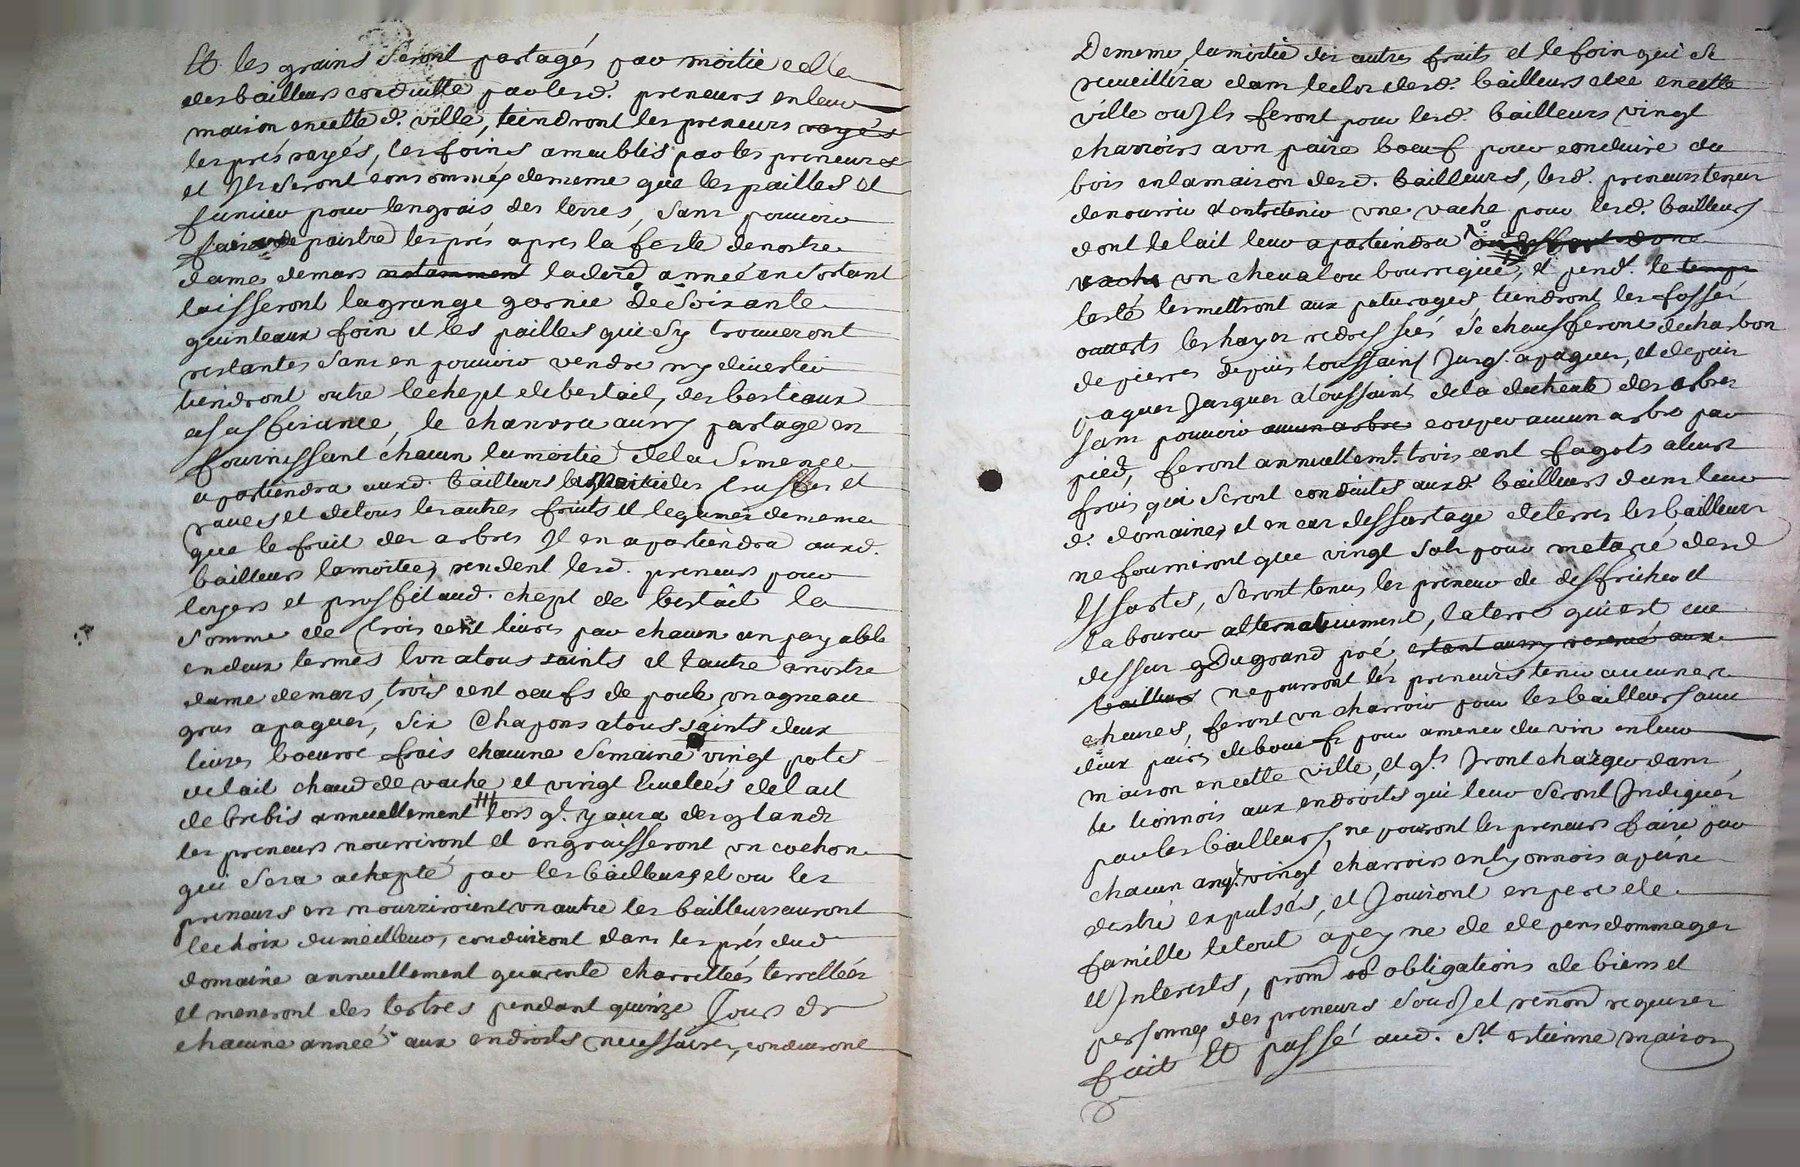 Et les grains seront partagés par moitié celle
des bailleurs conduitte par lesd. preneurs en leur
maison en cette d. ville, tiendront les preneurs rayés
les prés rayés, les foins ameublis par les preneurs
et Ils seront consommés de meme que les pailles et
fumier pour lengrais des terres, sans pouvoir
faire paistre les prés apres la feste de nostre
dame de mars notamment la derẽ année en sortant
laisseront la grange garnie de soixante
quinteaux foin et les pailles qui s'y trouveront
restantes sans en pouvoir vendre ny divertir
tiendront outre le chept de bestail, des bestiaux
a sufisance, le chanvre aussy partagé en
fournissant chacun la moitié de la semence
apartiendra auxd. bailleurs la moitié des truffes et
raves et de tous les autres fruits et legumes de meme
que le fruit des arbres Il en apartiendra auxd.
bailleurs la moitié, rendent lesd. preneurs pour
loyers et proffit aud. chept de bestail la
somme de trois cent livres par chacun an payable
en deux termes lun a tous saints et l'autre a nostre
dame de mars, trois cent oeufs de poule un agneau
gras a paques, six chapons a tous saints deux
livres boeurre frais chacune semaine vingt pots
de lait chaud de vache et vingt Ecuelées de lait
de brebis annuellement lors q.^l y aura des glands
les preneurs nourriront et engraisseront un cochon
qui sera achepté par les bailleurs, et ou les
preneurs en nourriroient un autre les bailleurs auront
le choix du meilleur, conduiront dans les prés dud
domaine annuellement quarente charrettées terrellées
et meneront des tertres pendant quinze Jours de
chacune année aux endroits necessaires, conduiront
De meme, la moitié des autres fruits et le foin qui se
recueillira dans le clos desd. bailleurs cite en cette
ville ou Ils feront pour lesd. bailleurs vingt
charroirs a un paire boeuf pour conduire du
bois en la maison desd. bailleurs, lesd. preneurs tenus
de nourrir et entretenir une vache pour lesd. bailleurs
dont le lait leur apartiendra
vache un cheval ou bourrique, et pend.^t le temps
lesté les mettront aux paturages, tiendront les fossés
ouverts les hayes redressiés se chaufferont de charbon
de pierres depuis toussaint Jusq. a paques, et depuis
paques Jusques a toussaint de la decheute des arbres
sans pouvoir aucun arbre couper aucun arbre par
pied, feront annuellem.^t trois cent fagots a leurs
frais qui seront conduits auxd. bailleurs dans leur
d. domaine, et en cas dessartage de terres les bailleurs
ne fourniront que vingt sols pour meterée desd
Essartés, seront tenus les preneur de desfricher et
labourer alternativement, la terre qui est au
dessus du grand pré, estant aussy reservé aux
bailleurs ne pourront les preneurs tenir aucunes
chevres, feront un charroir pour les bailleurs avec
deux paires de boeufs pour amener du vin en leur
maison en cette ville, et q.^ls Iront charger dans
le lionnois aux endroits qui leur seront Indiqués
par les bailleurs, ne pouront les preneurs faire par
chacun an q.^e vingt charroirs en lyonnois a peine
destre expulsés, et Jouiront en pere de
famille le tout a peyne de depens dommages
et Interests, prom̃ obligations de biens et
personnes des preneurs soud et renonõ requises
fait Et passé aud. S.^t estienne maison